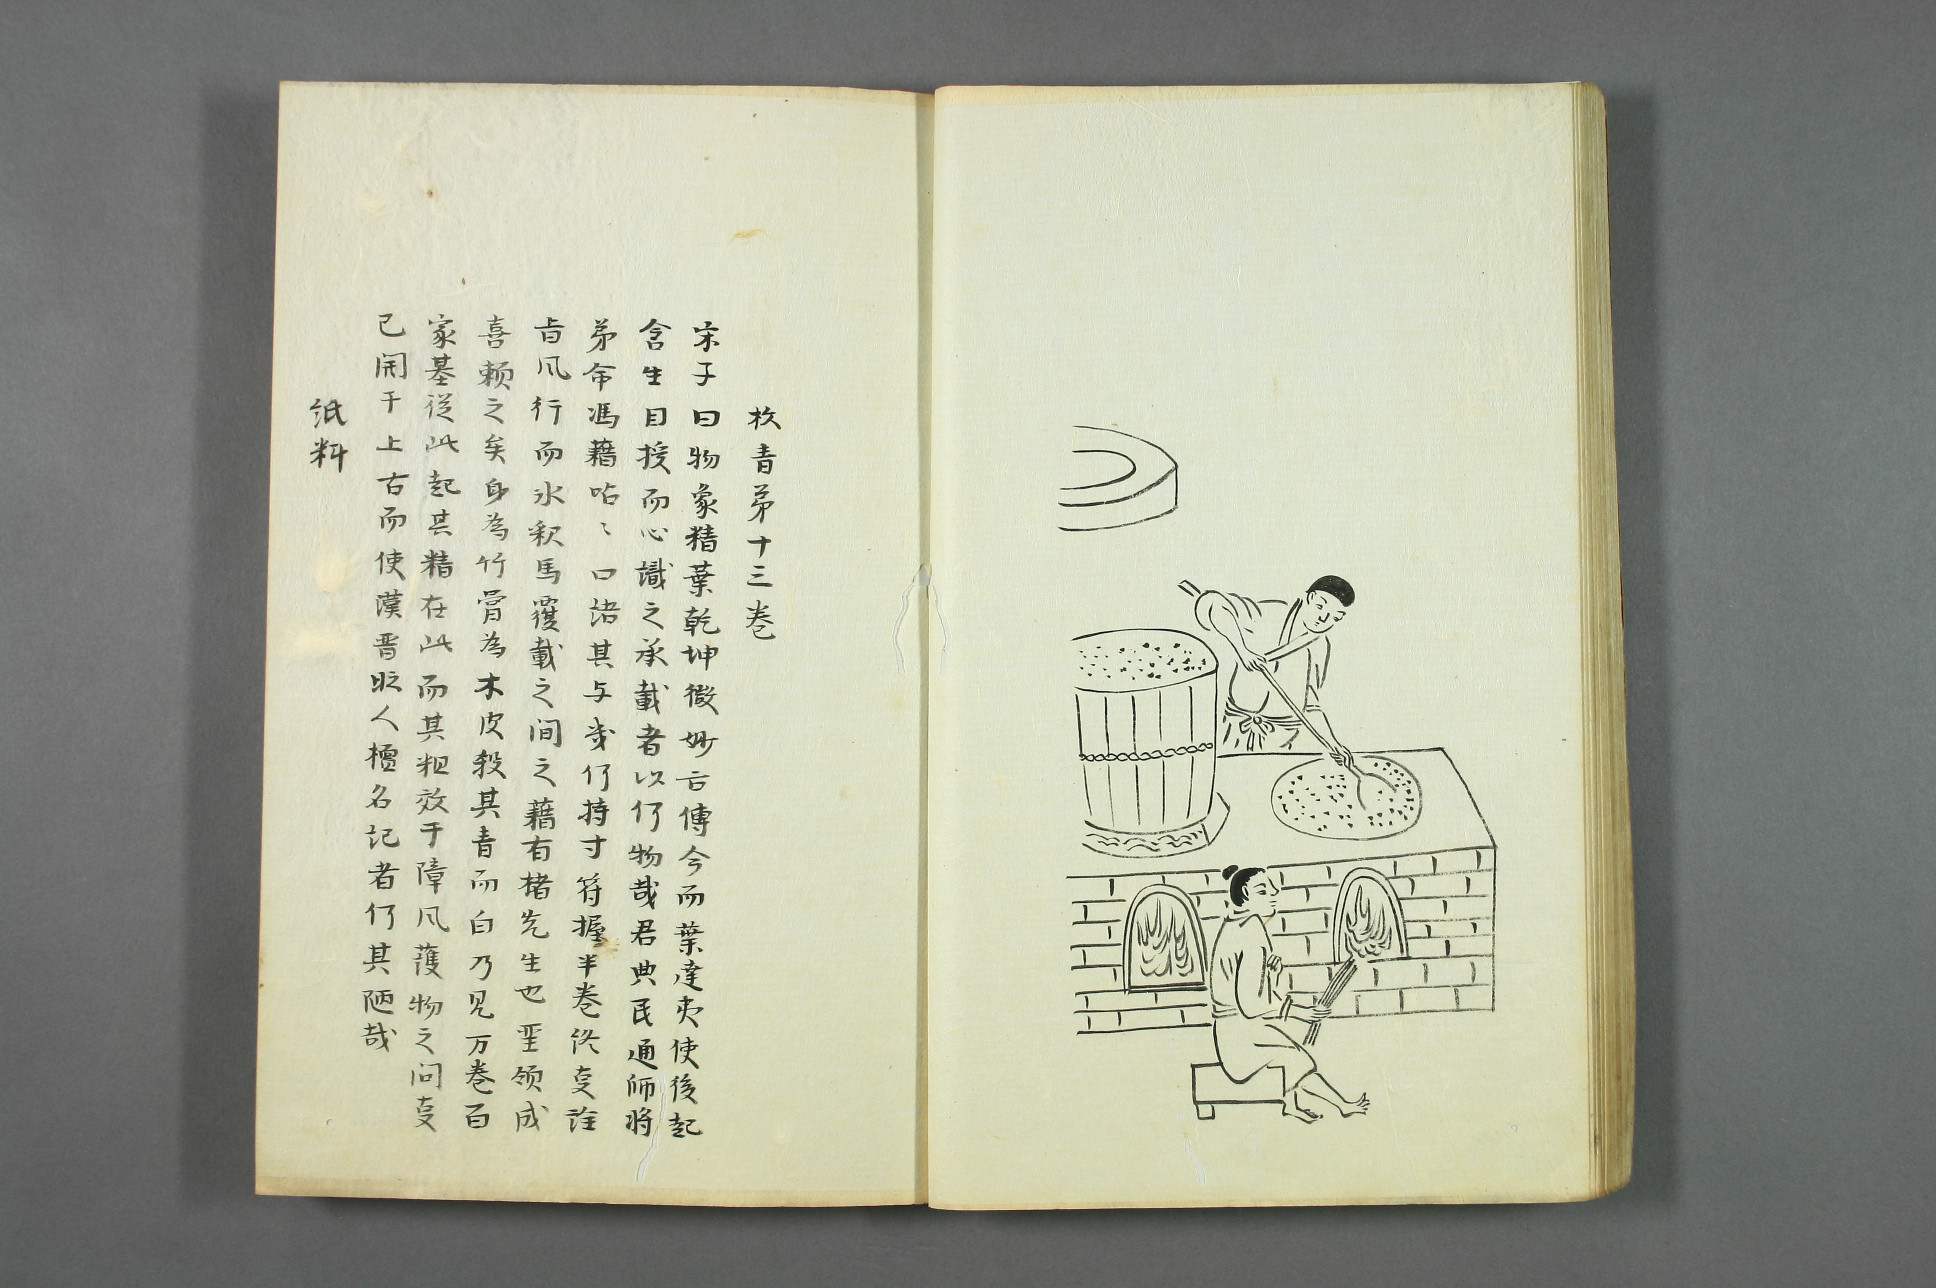 枚青苐十三卷
宋子曰物象精葉乾坤微妙古傳今而葉達夷使後起
含生目授而心識之承載者以何物哉君典民通师将
苐命馮藉呫〻口语其与岁何持寸符握半卷终叓詮
旨风行而氷釈馬覆載之间之藉有楮先生也聖领成
喜赖之矣身為竹骨為木皮殺其青而白乃見万卷百
家基從此起其精在此而其粗效于障风護物之问叓
已開于上古而使漢晋时人檀名記者何其陋哉
紙料